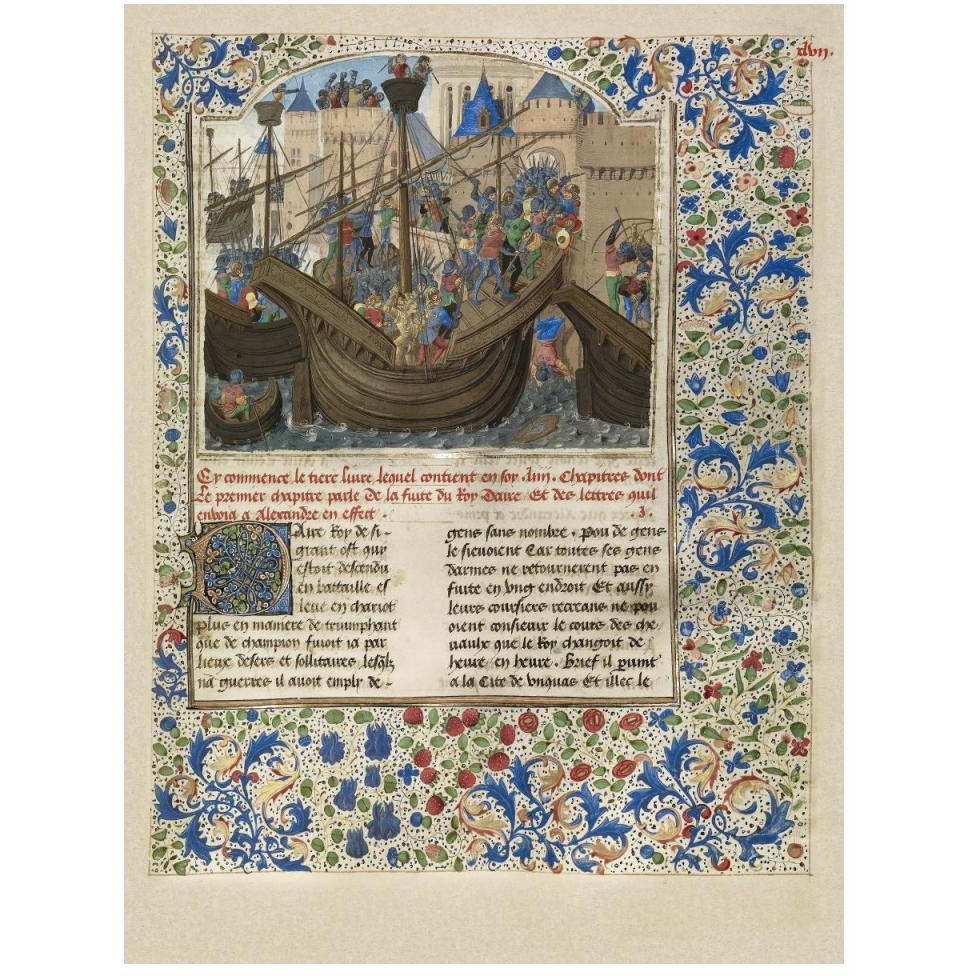 clvii.
Cy commence le tiers livre lequel contient en soy .xxiii. Chapitres dont
Le premier chapitre parle de la fuite du Roy Daire Et des lettres quil
envoia a Alexandre en effect .3.
Aire Roy de si
grant ost quy
estoit descendu
en battaille es
leue en chariot
plus en maniere de triumphant
que de champion fuioit ia par
lieux desers et sollitaires, lesqlz
na guerres il auoit emply de-
gens sans nombre . pou de gens
le sieuoient Car toutes ses gens
darmes ne retournerent pas en
fuite en vng endroit Et aussy
leurs coursiers recreans ne pou
oient consieuir le cours des che
uaulx que le Roy changoit de
heure en heure . Brief il paruint
a la Cite de vnquas Et illec le